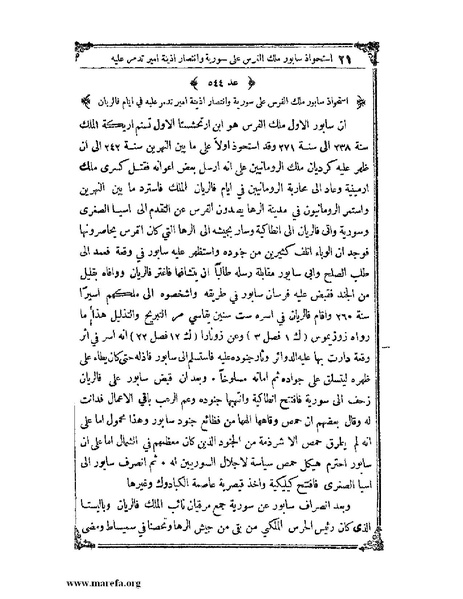 ٢٦ استحواذ سابور ملك الفرس على سورية وانتصار اذينة امير تدمر عليه
﴿ عد ٥٤٤ ﴾
﴿ استحواذ سابور ملك الفرس على سورية وانتصار اذينة امير تدمر عليه في ايام فالريان ﴾
ان سابور الاول ملك الفرس هو ابن ارتحششتا الاول تسنم اريكة الملك
سنة ٢٣٨ الى سنة ٢٧١ وقد استحوذ اولاً على ما بين النهرين سنة ٢٤٢ الى ان
ظهر عليه كرديان ملك الرومانيين على انه ارسل بعض اعوانه فقتل كسرى ملك
ارمينية وعاد الى محاربة الرومانيين في ايام فالريان الملك فاسترد ما بين النهرين
واستمر الرومانيون في مدينة الرها يصدون الفرس عن التقدم الى اسيا الصغرى
وسورية واتى فالريان الى انطاكية وسار بجيشه الى الرها التي كان الفرس يحاصرونها
فوجد ان الوباء اتلف كثيرين من جنوده واستظهر عليه سابور في وقعة فعمد الى
طلب الصلح وابى سابور مقابلة رسله طالباً ان يتشافها فاغتر فالريان ووافاه بقليل
من الجند فقبض عليه فرسان سابور في طريقه واشخصوه الى ملكهم اسيرًا
سنة ٢٦٠ واقام فالريان في اسره ست سنين يقاسي مر التبريح والتذليل هذا ما
رواه زوزيموس ( ك ١ فصل ٣ ) وعن زونارا ( ك ١٢ فصل ٢٢ ) انه اسر في اثر
وقعة دارت بها عليه الدوائر وثار جنوده عليه فاستسلم الى سابور فاذله حتى كان يطاء على
ظهره ليتسلق على جواده ثم اماته مسلوخاً ٠ وبعد ان قبض سابور على فالريان
زحف الى سورية فافتتح انطاكية وانتهبها جنوده وعم الرعب باقي الاعمال فدانت
له وقال بعضهم ان حمص وقاها الهها من فظائع جنود سابور وهذا محمول اما على
انه لم يتطرق حمص الا شرذمة من الجنود الذين كان معظمهم في الشمال اما على ان
سابور احترم هيكل حمص سياسة لاجلال السوريين له ٠ ثم انصرف سابور الى
اسيا الصغرى فافتتح كيليكية واخذ قيصرية عاصمة الكبادوك وغيرها
وبعد انصراف سابور عن سورية جمع مرقيان نائب الملك فالريان وباليستا
الذي كان رئيس الحرس الملكي من بقي من جيش الرها وتحصنا في سميساط ومضى
www.marefa.org